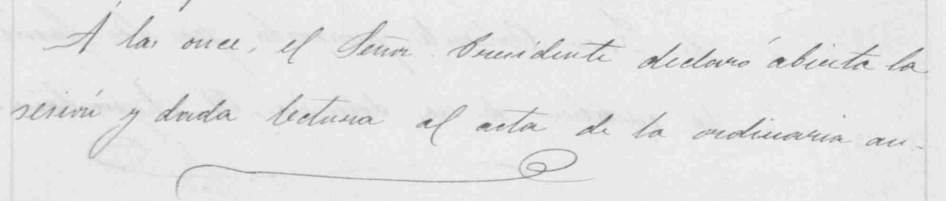 A las once, el Señor Presidente declaró abierta la
sesión y dada lectura al acta de la ordinaria an-